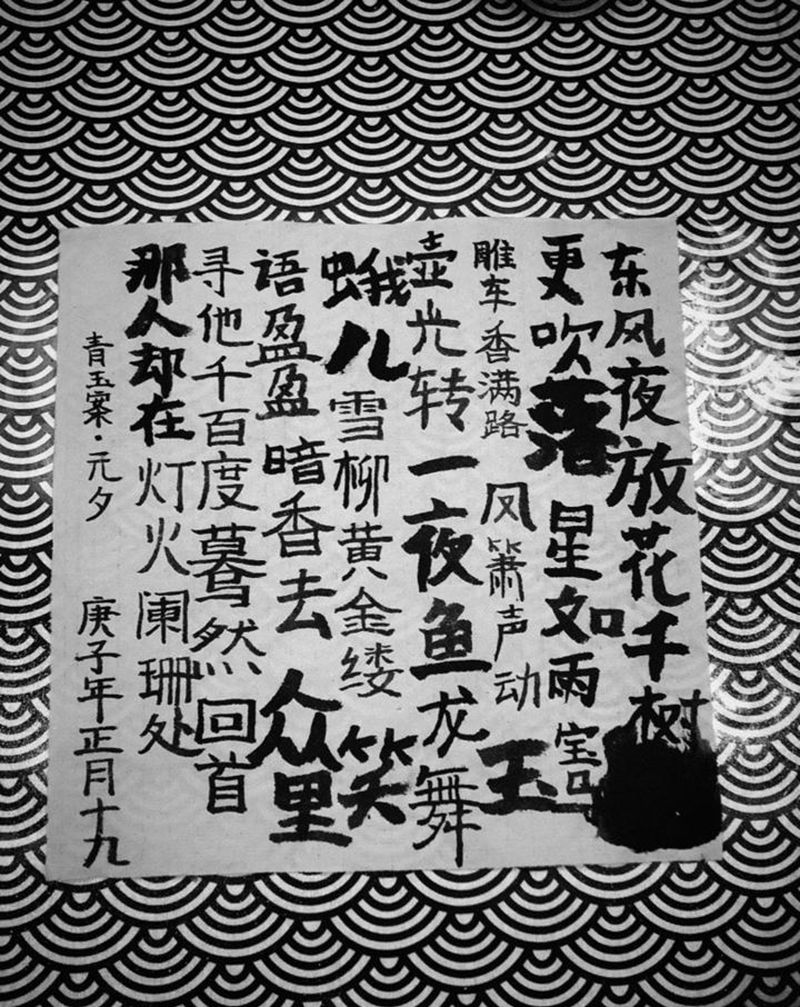 东风夜放花千树
更吹落星如雨宝马
雕车香满路凤箫声动玉
壶光转一夜鱼龙舞
蛾儿雪柳黄金缕笑
语盈盈暗香去众里
寻他千百度蓦然回首
那人却在灯火阑珊处
青玉案·元夕 庚子年正月十九